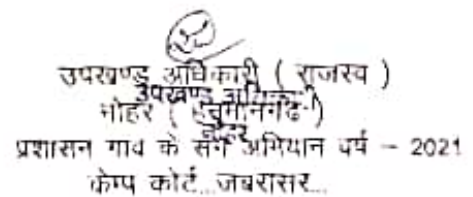 उपखण्ड अधिकारी ( राजस्व )
उपखण्ड अधिकारी
नोहर ( हनुमानगढ )
नोहर
प्रशासन गाव के संग अभियान वर्ष – 2021
केम्प कोर्ट...जबरासर...